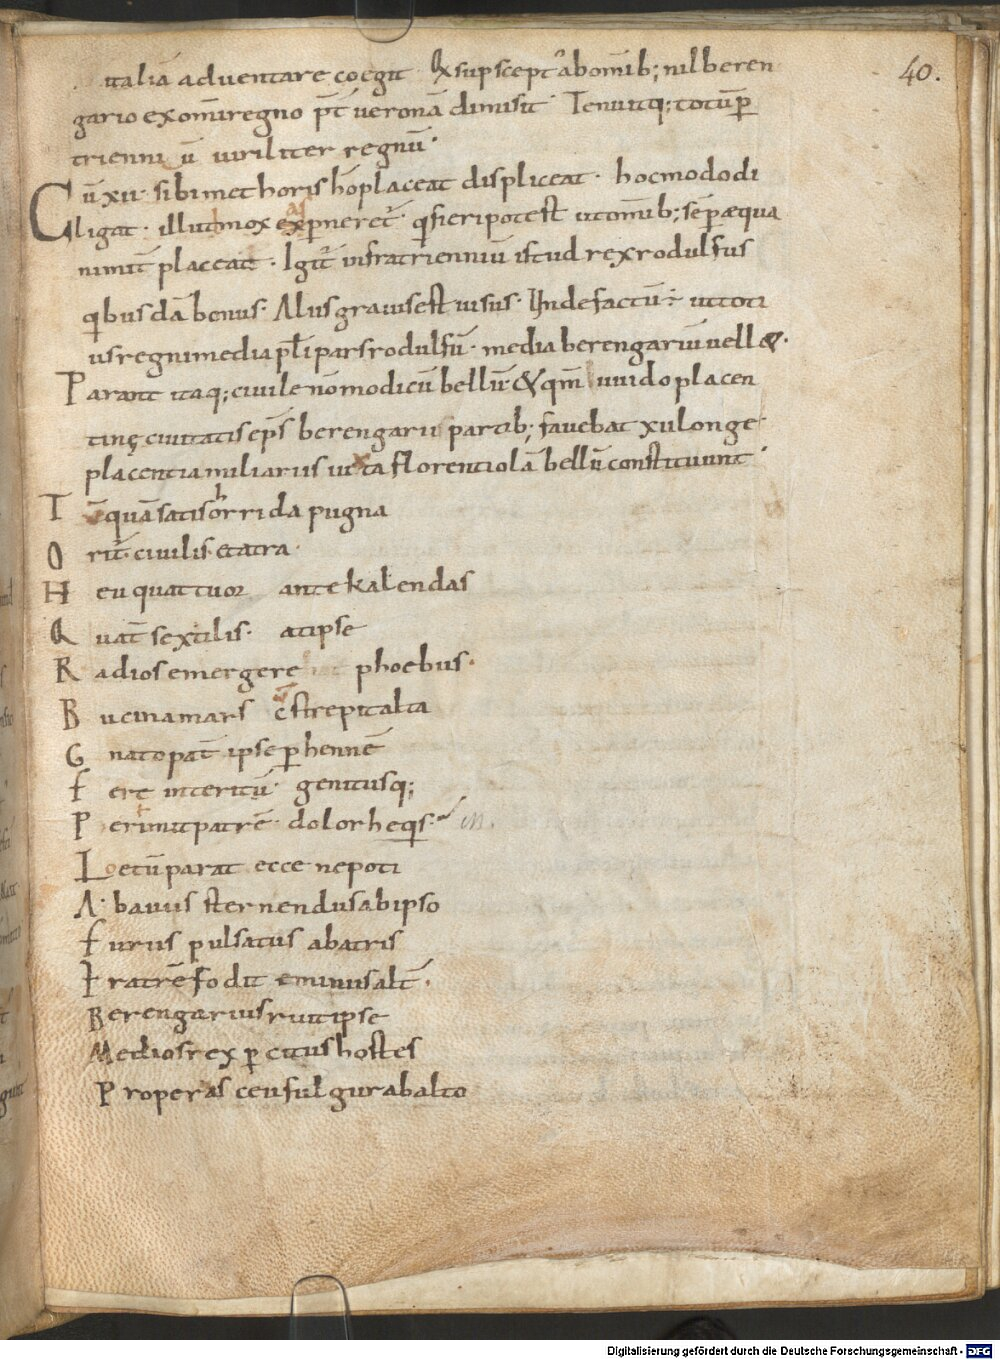 italiā aduentare coegit Qx supscept᷑ abomīb; nil beren
40.
gario exomīregno p̄t ueronā dimisit Tenuitq; totūp
trienniū uiriliter regnū·
Cū xii· sibimet horis hō placeat displiceat· hocmododi
ligat· illud mox expneret᷑· qͥ fieripotest utomīb; sēp æqua
nimit᷑ placeat· Igit᷑ infratrienniū istud rex rodulfus
qͥbusdā bonus· Alus grauisest uisus· Inde factū ÷ ut toti
us regnimedia pl̄i pars rodulfū· media berengariū uell&·
Parant itaq; ciuile nōmodicū bellū· & qm̄ uuido placen
tinę ciuitatis ep̄s berengarii partib; fauebat xii longe
placentiamiliariis iuxta florentiolā bellū constituunt·
T quā satis orrida pugna
h
O rit᷑ ciuilis etatra·
H eu quattuor ante kalendas
Q uat᷑ sextilis· atipse
R adios emergere phoebus·
B ucinamars strepitalta
G nato pat᷑ ipse phennē
F ere interitū genitusq;
P erimit patrē· dolor heqͥs
L oetū parat ecce nepoti
A· bauus sternendus abipso
F urus pulsatus abatris
F ratrē fodit eminus alt᷑·
Berengarius ruit ipse
Medios rex pcitus hostes
P roperas ceu fulgurabalto
Digitalisierung gefördert durch die Deutsche Forschungsgemeinschaft - DFG